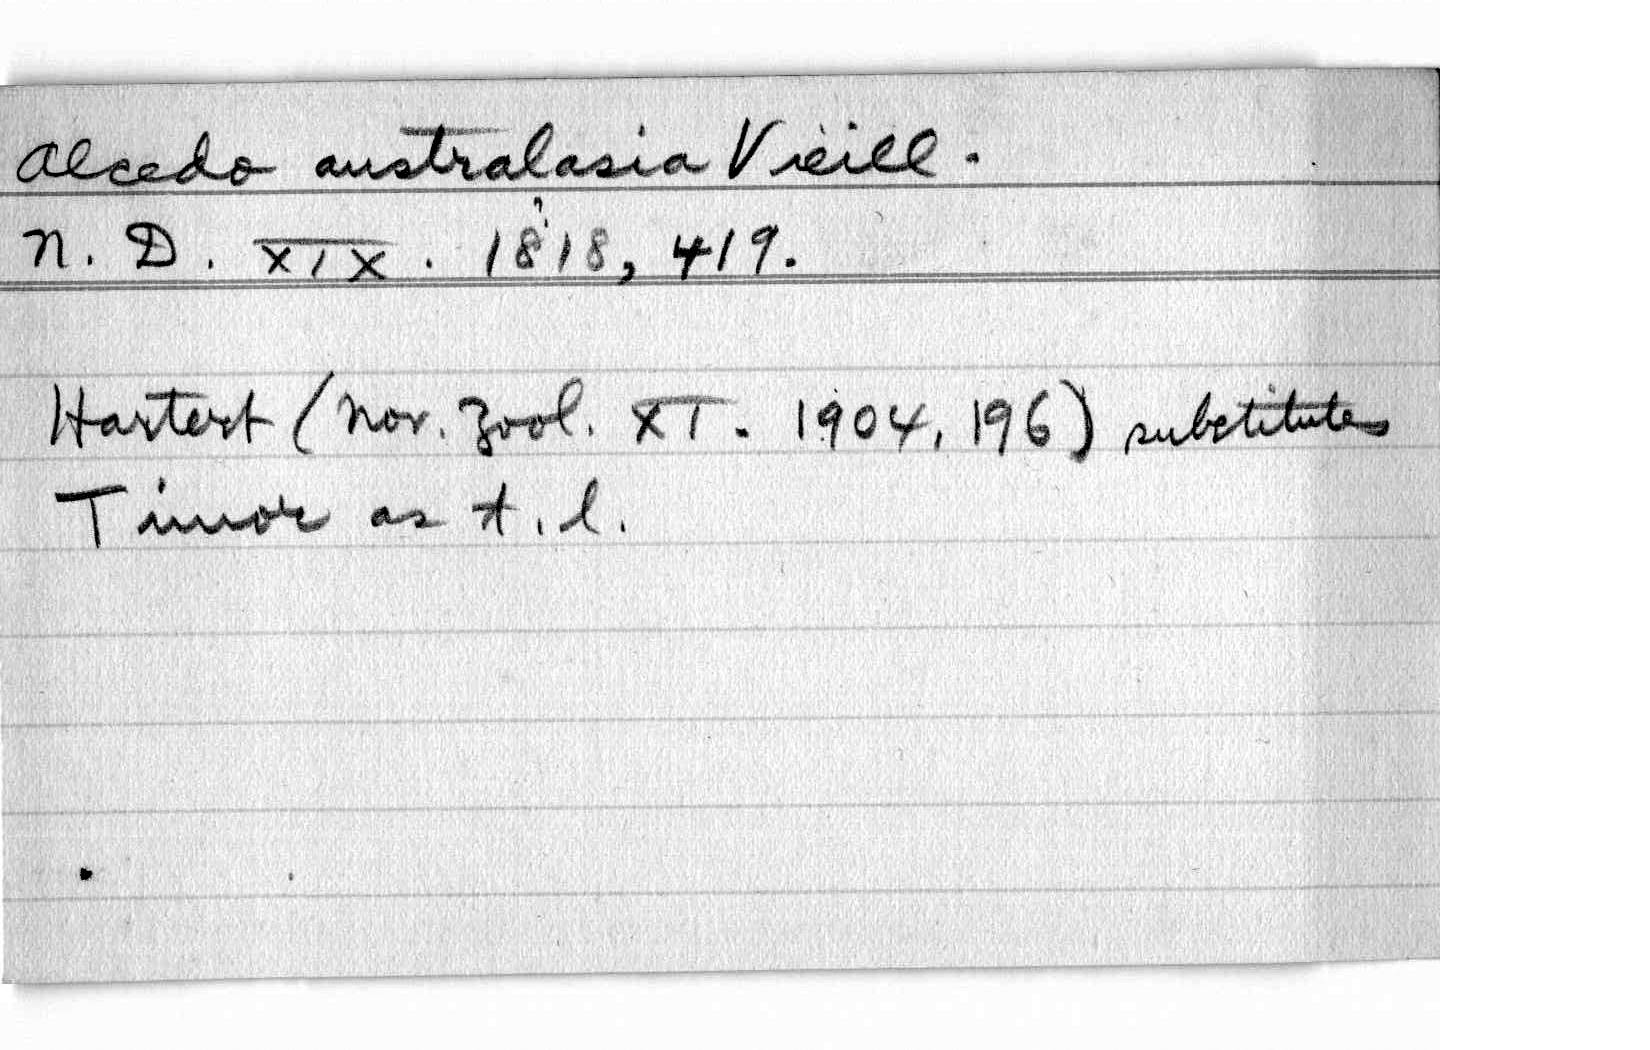 Alcedo australasia Vieill.
N. D. XIX. 1818, 419.
Hartert (Nov. Zool. XI. 1904, 196) substitutes
Timor as t. l.